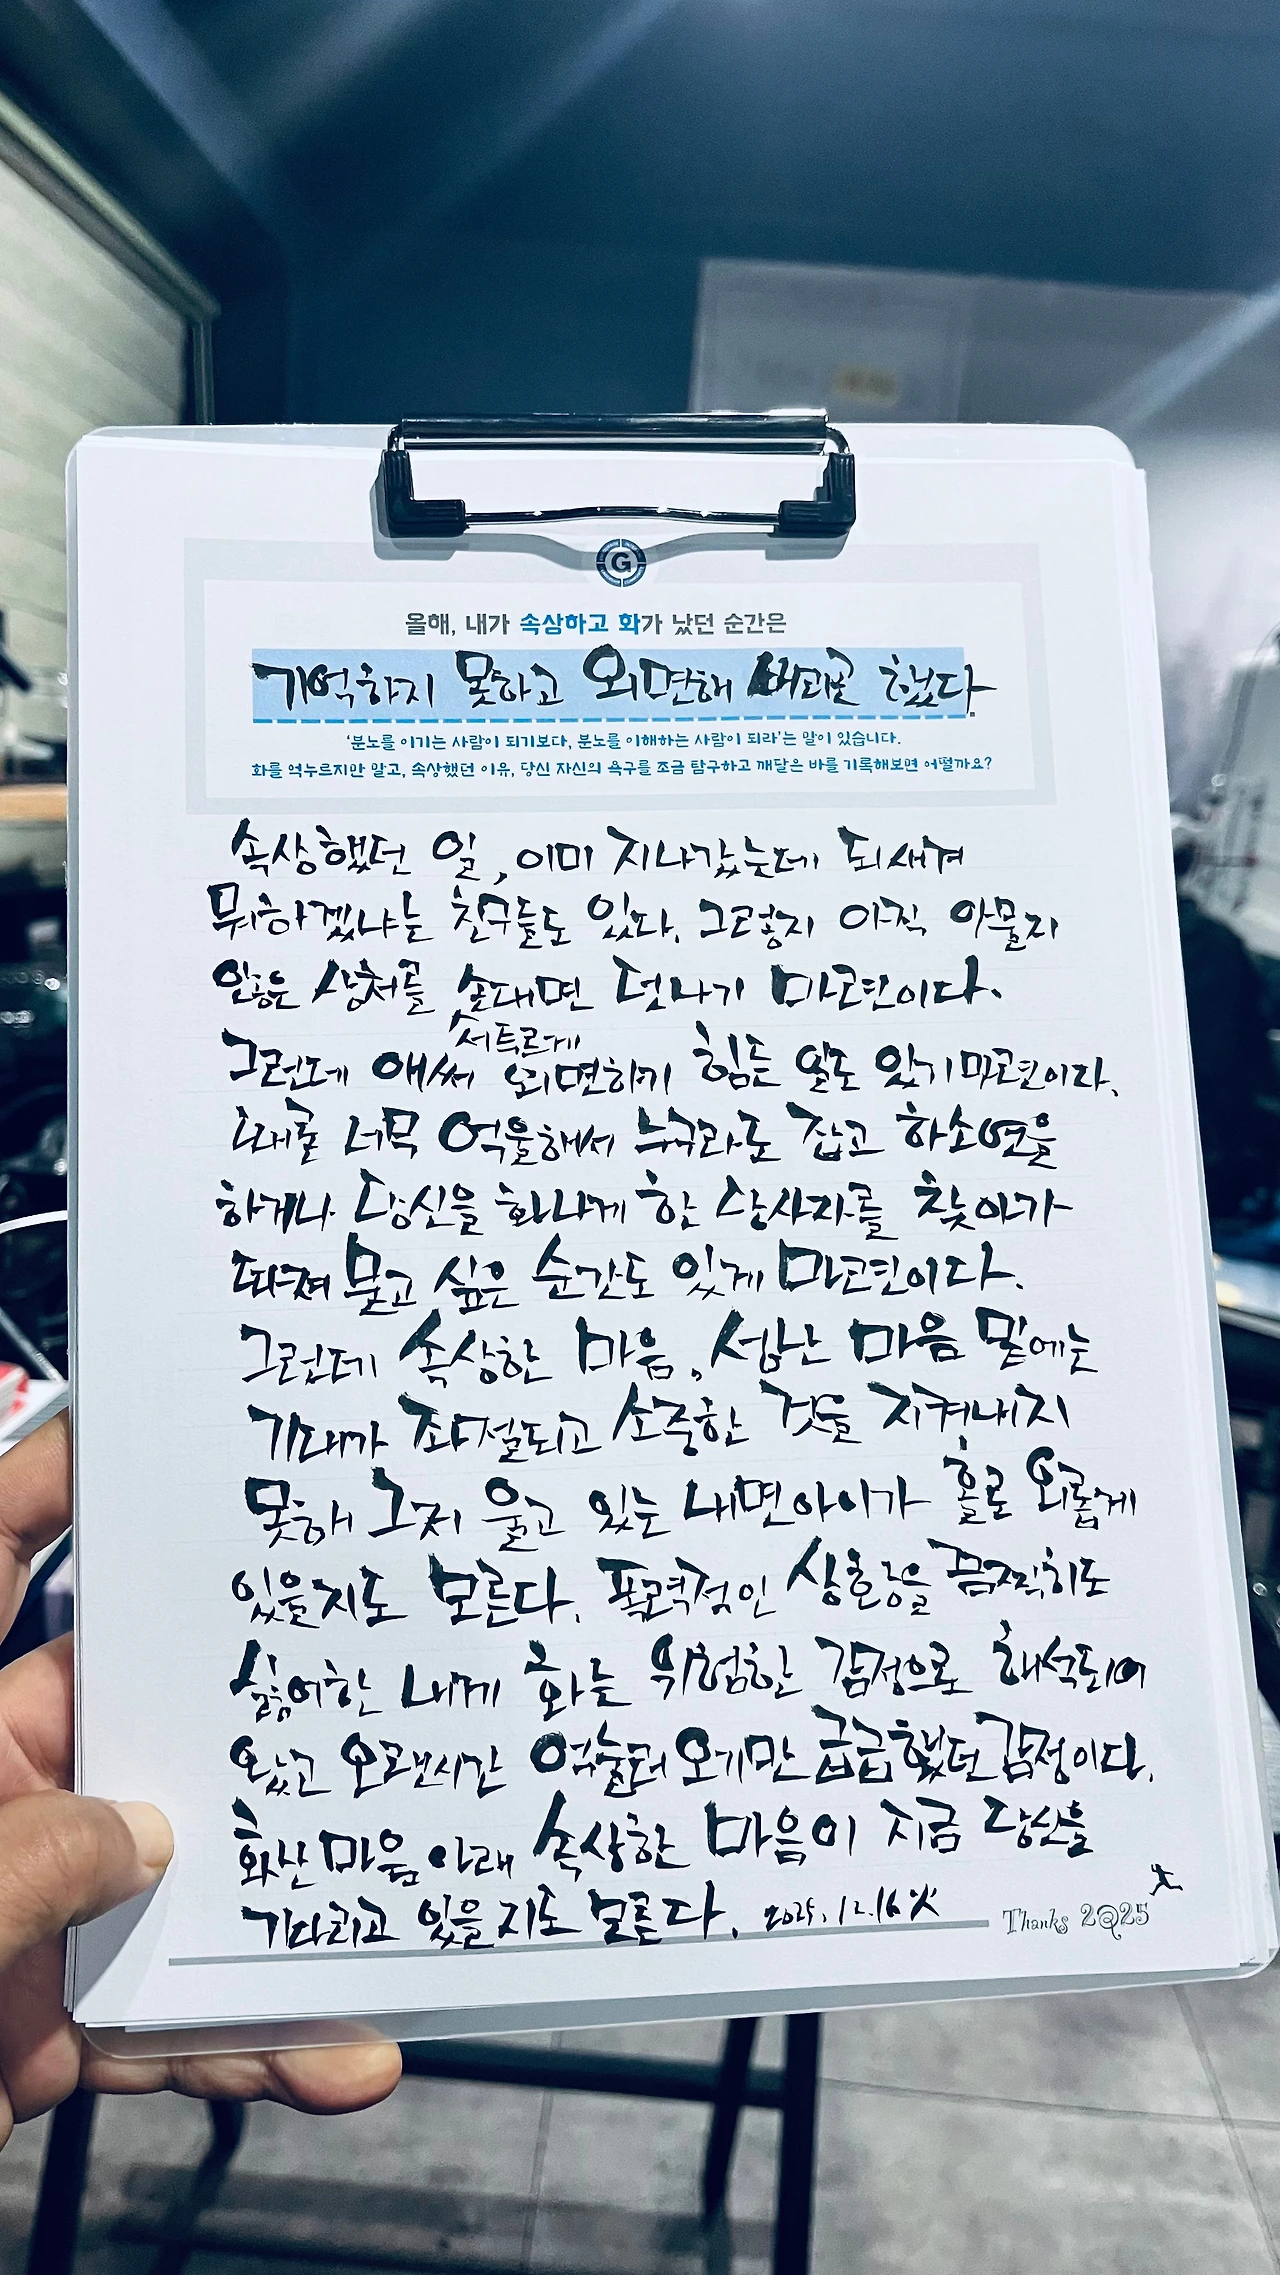 G
올해, 내가 속상하고 화가 났던 순간은
기억하지 못하고 외면해 버리곤 했다.
'분노를 이기는 사람이 되기보다, 분노를 이해하는 사람이 되라'는 말이 있습니다.
화를 억누르지만 말고, 속상했던 이유, 당신 자신의 욕구를 조금 탐구하고 깨달은 바를 기록해보면 어떨까요?
속상했던 일, 이미 지나갔는데 되새겨
뭐하겠냐는 친구들도 있다. 그렇지 아직 아물지
않은 상처를 손대면 덧나기 마련이다.
서투르게
그런데 애써 외면하기 힘든 일도 있기 마련이다.
때론 너무 억울해서 누구라도 잡고 하소연을
하거나 당신을 화나게 한 당사자를 찾아가
따져 묻고 싶은 순간도 있게 마련이다.
그런데 속상한 마음, 성난 마음 밑에는
기대가 좌절되고 소중한 것을 지켜내지
못해 그저 울고 있는 내면아이가 홀로 외롭게
있을지도 모른다. 폭력적인 상황을 끔찍히도
싫어한 내게 화는 위험한 감정으로 해석되어
왔고 오랜시간 억눌러 오기만 급급했던 감정이다.
화난 마음 아래 속상한 마음이 지금 당신을
기다리고 있을지도 모른다. 2025.12.16 火
Thanks 2025